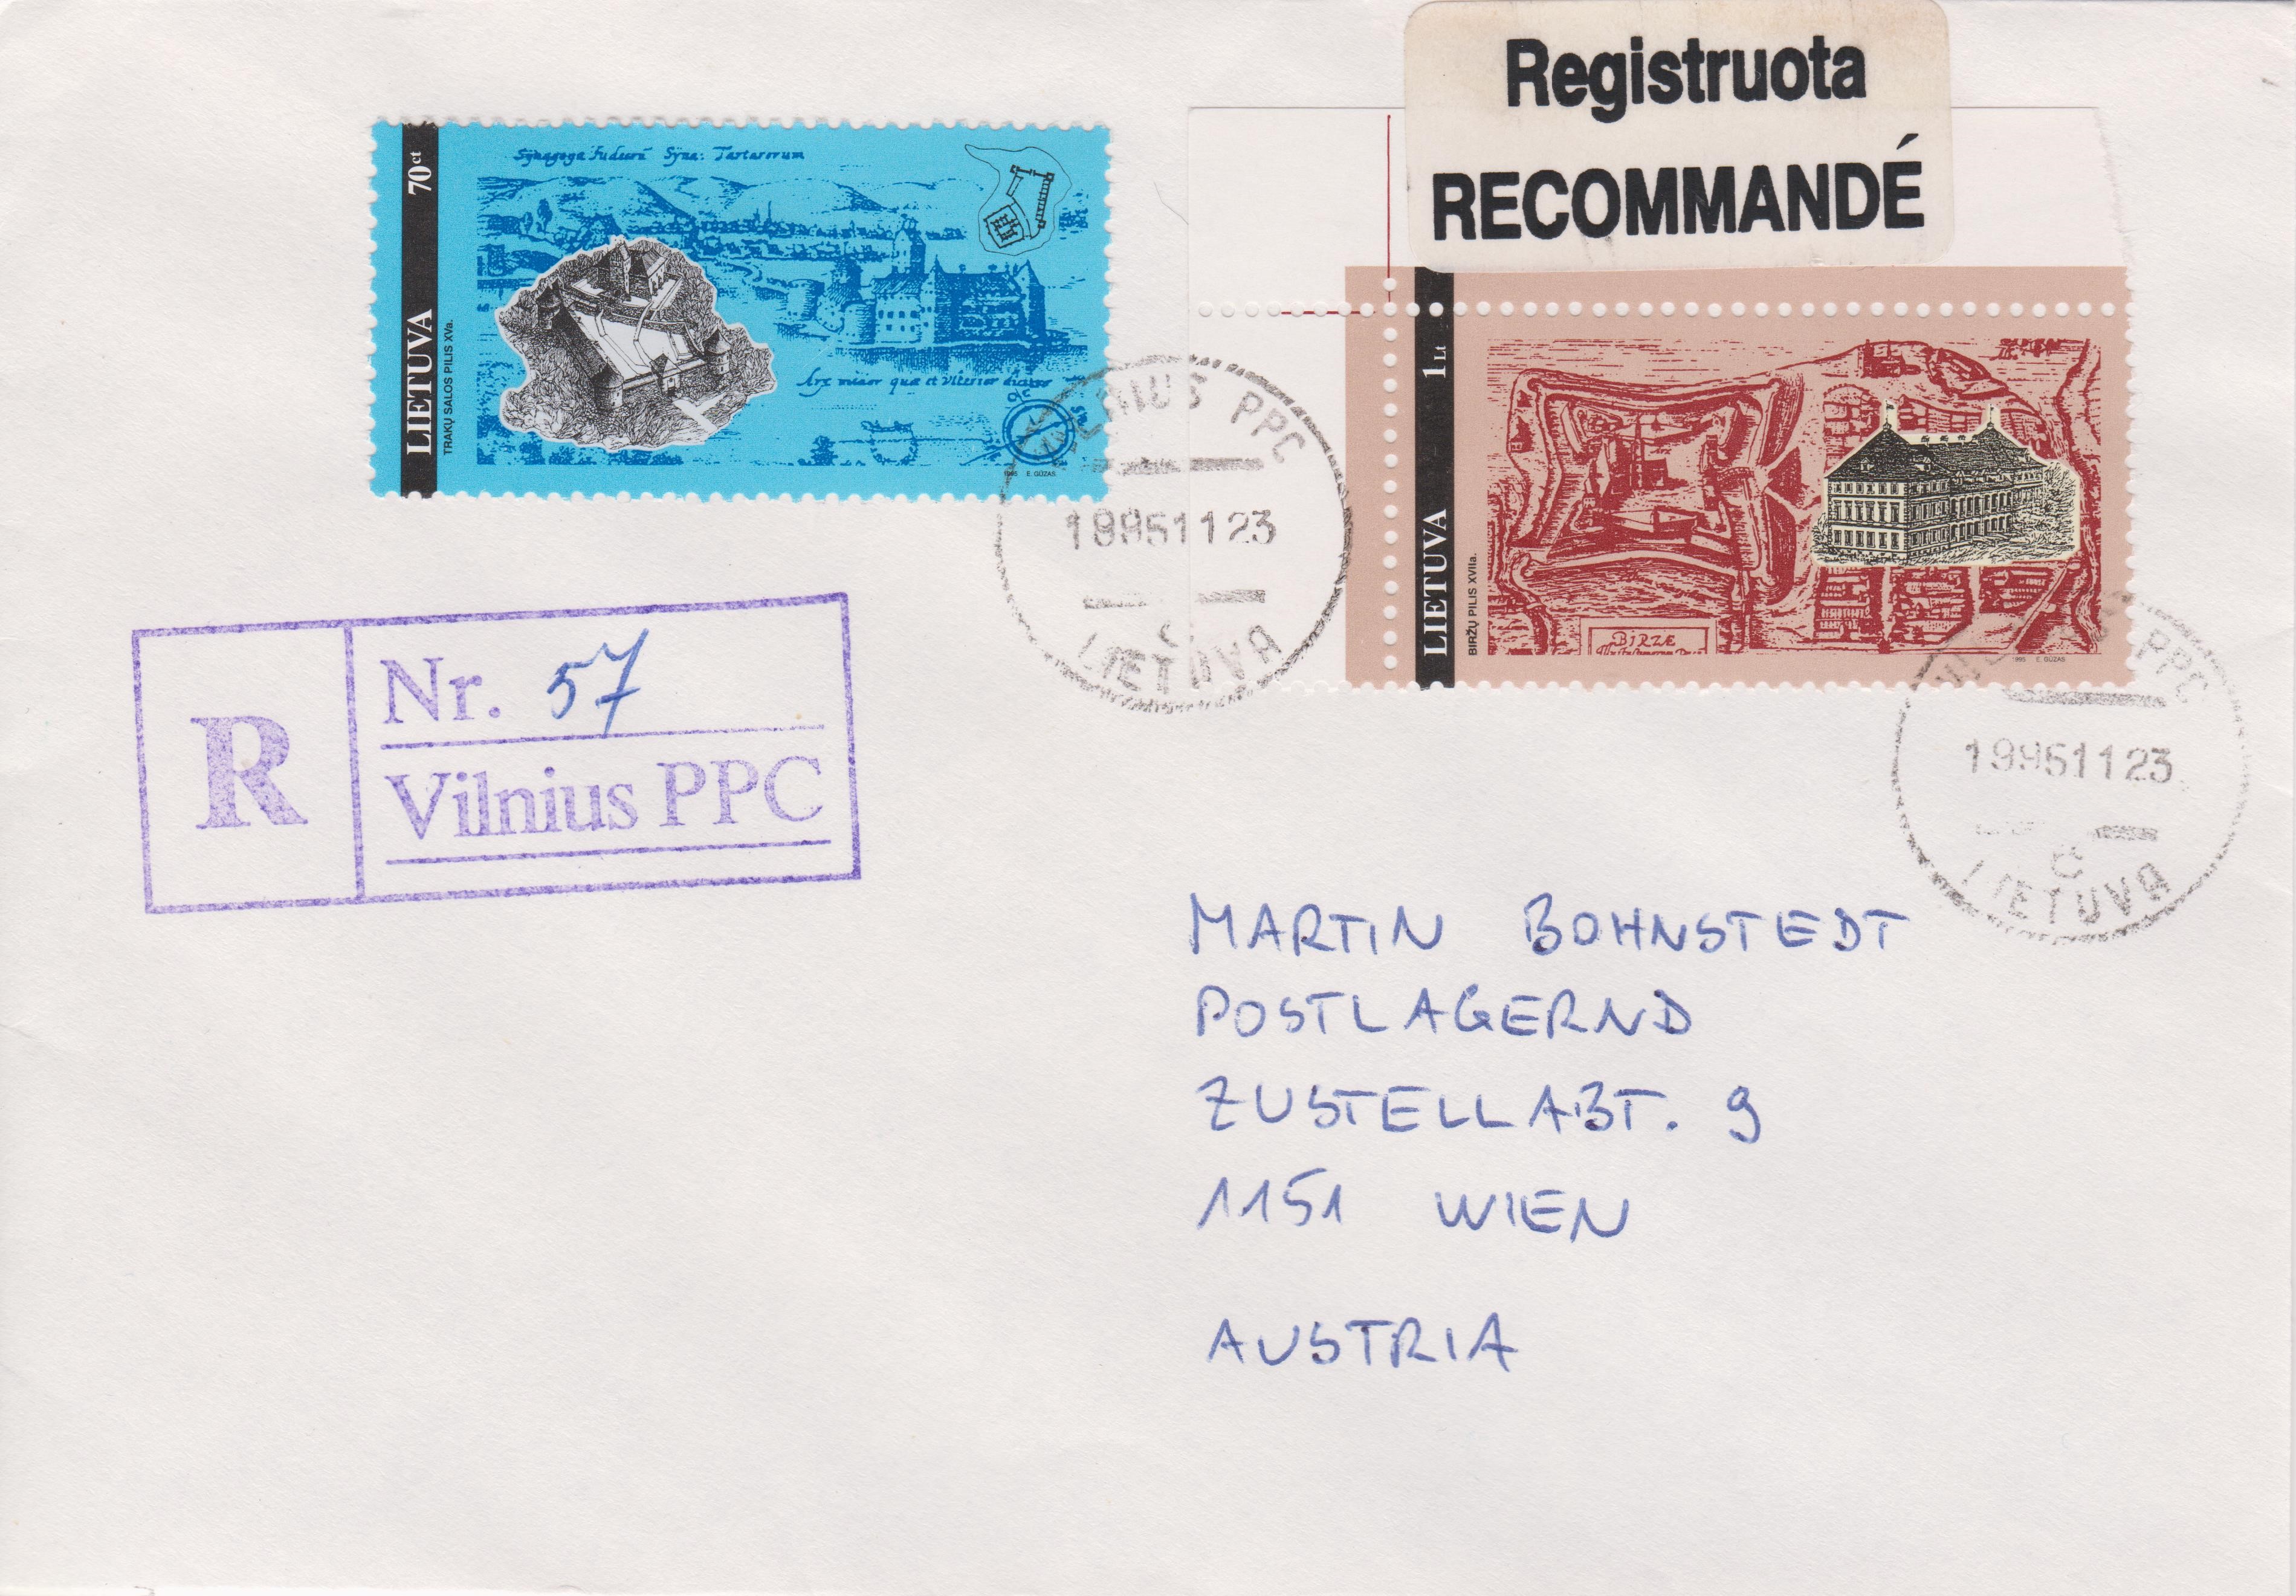 Registruota
RECOMMANDÉ
LIETUVA 70ct
TRAKŲ SALOS PILIS XVa.
Synagoga Judeorū Syna: Tartarorum
Arx minor quæ et Ulterior dicitur
1995 E. GŪZAS
LIETUVA 1 Lt
BIRŽŲ PILIS XVIIa.
BIRZE
1995 E. GŪZAS
VILNIUS PPC
19951123
C
LIETUVA
VILNIUS PPC
19951123
C
LIETUVA
R
Nr. 57
Vilnius PPC
MARTIN BOHNSTEDT
POSTLAGERND
ZUSTELLABT. 9
1151 WIEN
AUSTRIA